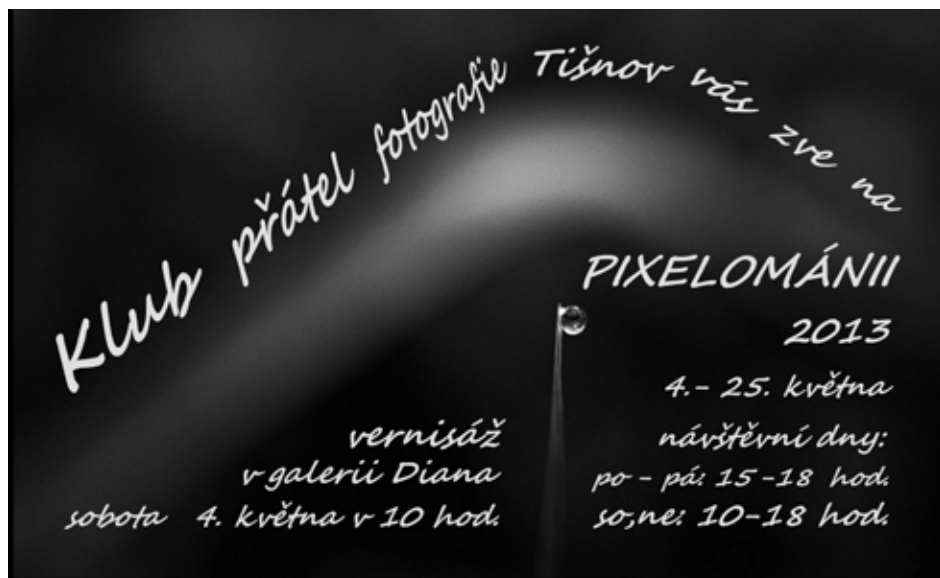 Klub přátel fotografie Tišnov vás zve na
PIXELOMÁNII
2013
4.- 25. května
vernisáž
v galerii Diana
sobota 4. května v 10 hod.
návštěvní dny:
po - pá: 15 -18 hod.
so,ne: 10-18 hod.